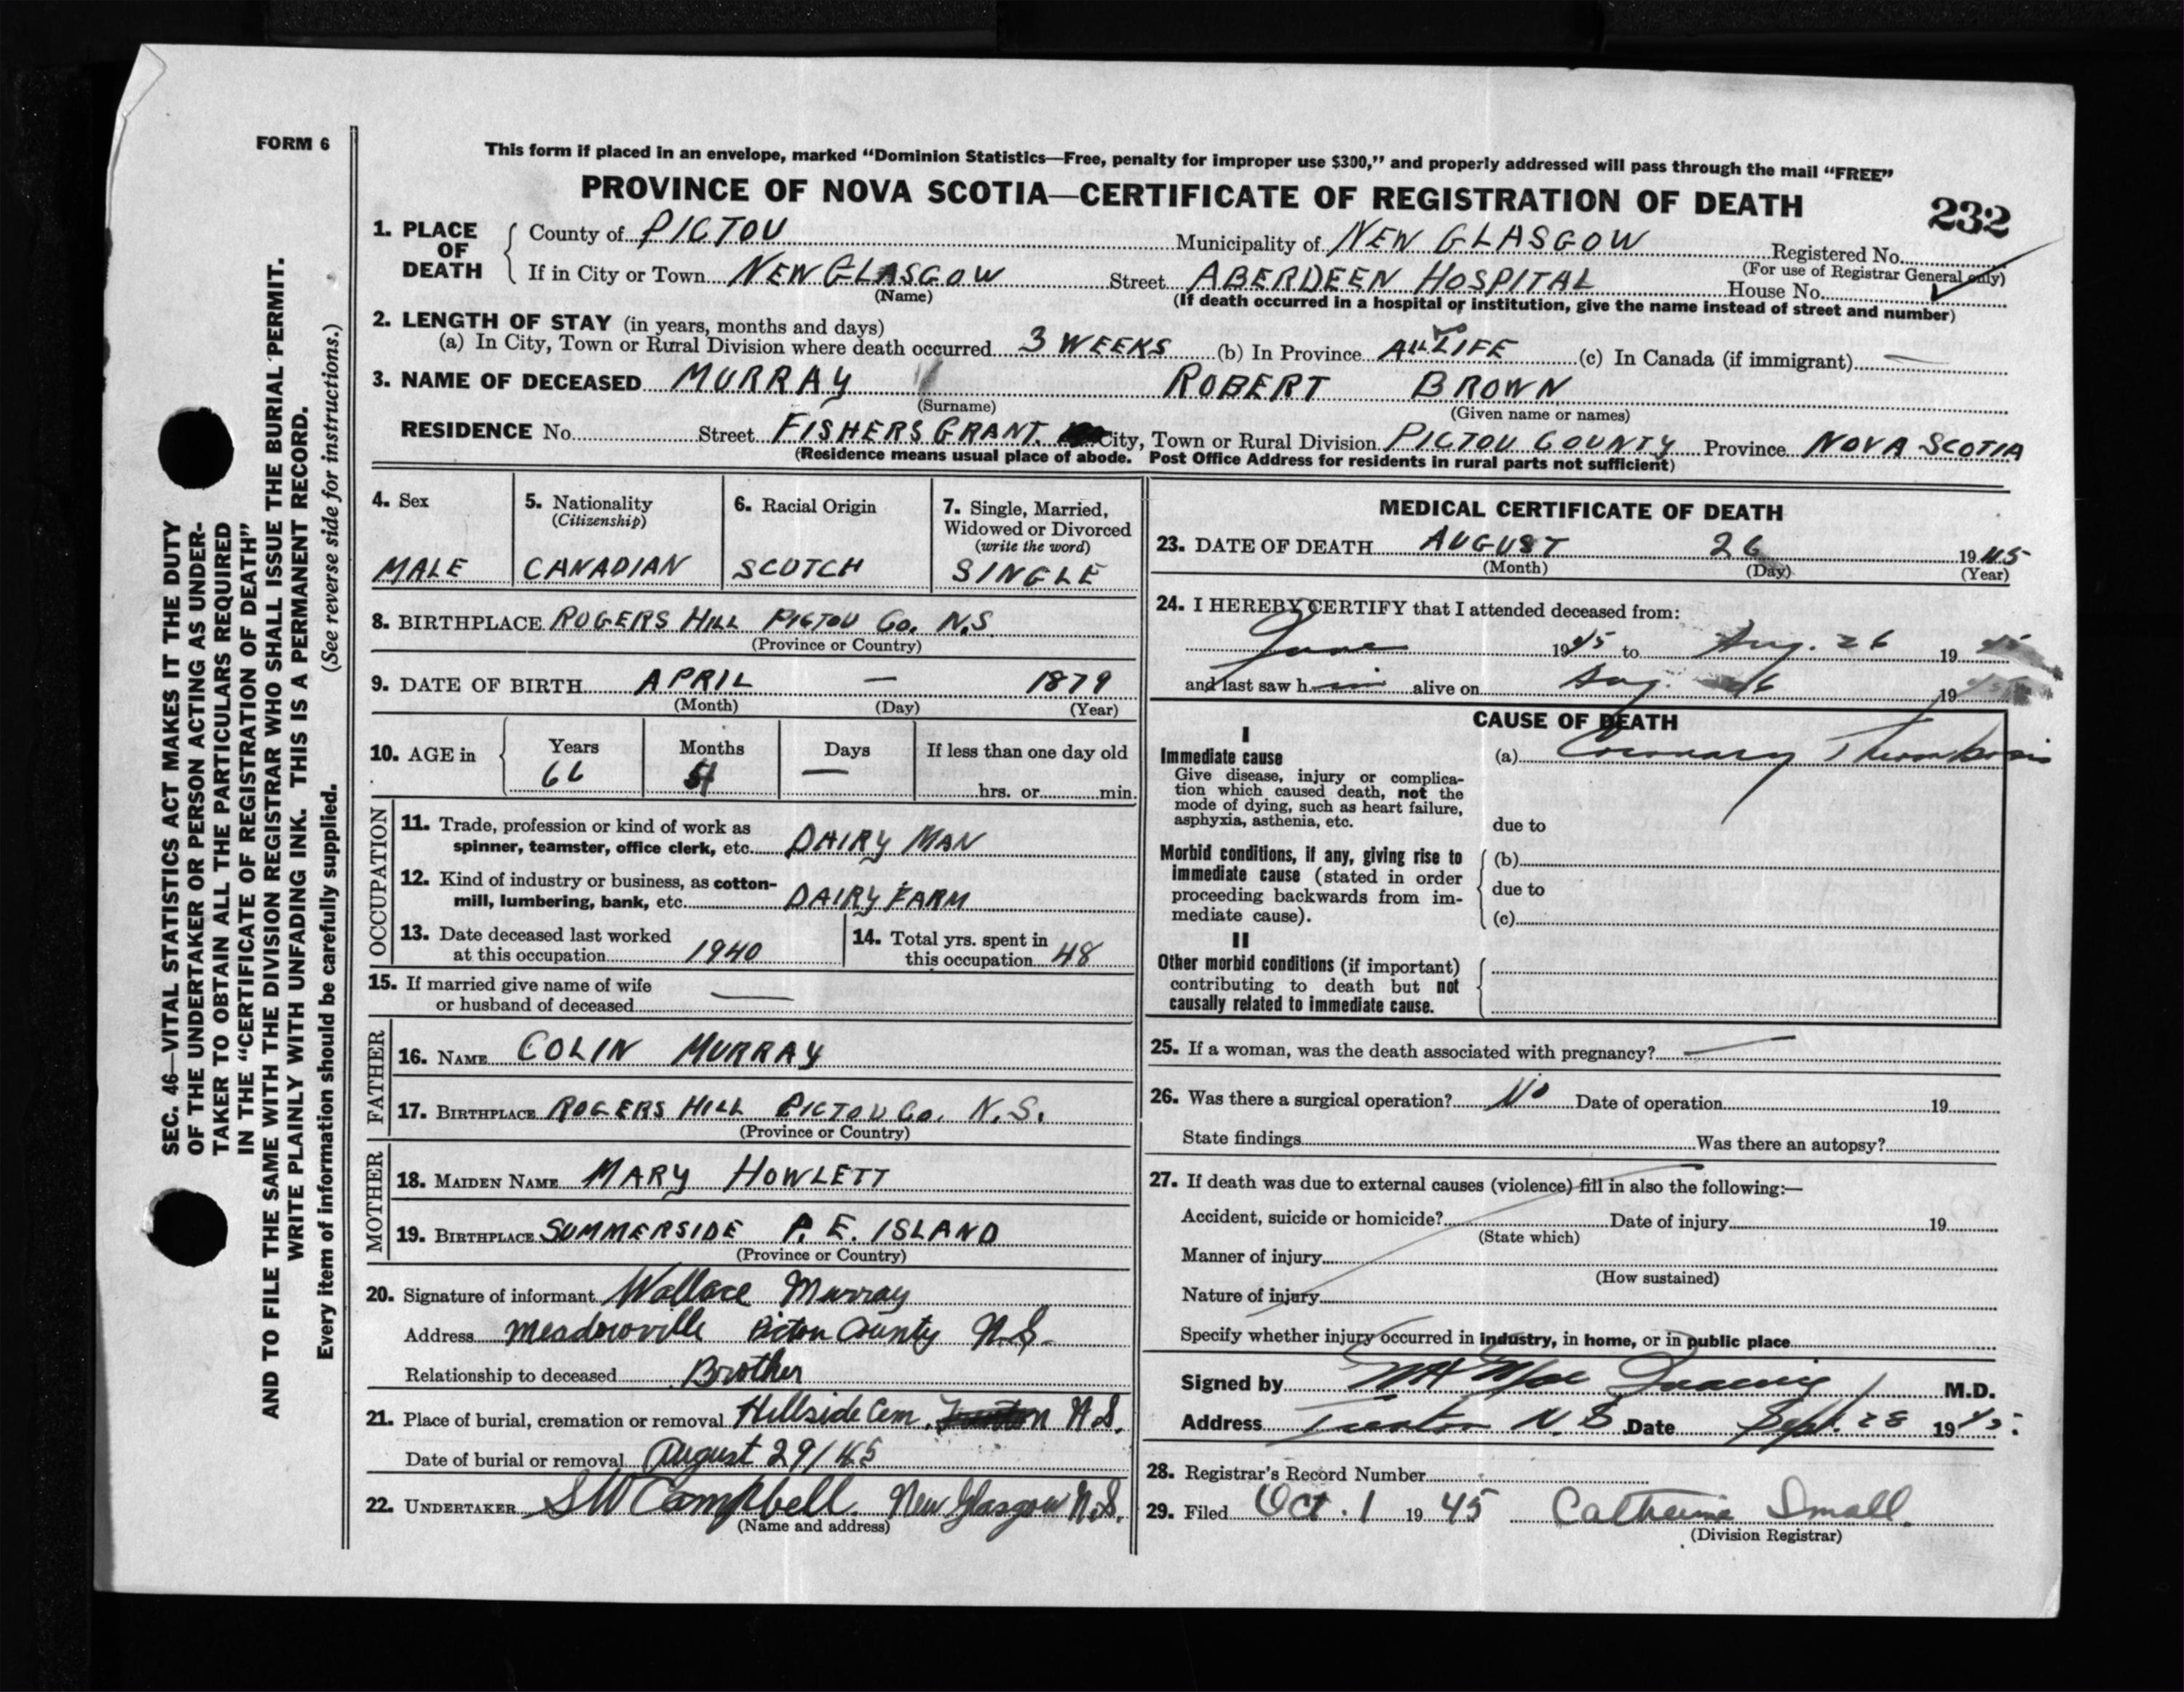 FORM 6
This form if placed in an envelope, marked “Dominion Statistics—Free, penalty for improper use $300,” and properly addressed will pass through the mail “FREE”
PROVINCE OF NOVA SCOTIA—CERTIFICATE OF REGISTRATION OF DEATH
232
1. PLACE OF DEATH
County of PICTOU Municipality of NEW GLASGOW Registered No.
(For use of Registrar General only)
If in City or Town NEW GLASGOW Street ABERDEEN HOSPITAL House No.
(Name)
(If death occurred in a hospital or institution, give the name instead of street and number)
2. LENGTH OF STAY (in years, months and days)
(a) In City, Town or Rural Division where death occurred 3 WEEKS (b) In Province ALL LIFE (c) In Canada (if immigrant) —
3. NAME OF DECEASED MURRAY ROBERT BROWN
(Surname) (Given name or names)
RESIDENCE No. Street FISHERS GRANT City, Town or Rural Division PICTOU COUNTY Province NOVA SCOTIA
(Residence means usual place of abode. Post Office Address for residents in rural parts not sufficient)
4. Sex
MALE
5. Nationality
(Citizenship)
CANADIAN
6. Racial Origin
SCOTCH
7. Single, Married,
Widowed or Divorced
(write the word)
SINGLE
8. BIRTHPLACE ROGERS HILL PICTOU Co. N.S.
(Province or Country)
9. DATE OF BIRTH APRIL — 1879
(Month) (Day) (Year)
10. AGE in
Years Months Days If less than one day old
66 4 —
hrs. or min.
OCCUPATION
11. Trade, profession or kind of work as
spinner, teamster, office clerk, etc. DAIRY MAN
12. Kind of industry or business, as cotton-
mill, lumbering, bank, etc. DAIRY FARM
13. Date deceased last worked
at this occupation 1940
14. Total yrs. spent in
this occupation 48
15. If married give name of wife
or husband of deceased —
FATHER
16. NAME COLIN MURRAY
17. BIRTHPLACE ROGERS HILL PICTOU Co. N.S.
(Province or Country)
MOTHER
18. MAIDEN NAME MARY HOWLETT
19. BIRTHPLACE SUMMERSIDE P.E. ISLAND
(Province or Country)
20. Signature of informant Wallace Murray
Address Meadowville Pictou County N.S.
Relationship to deceased Brother
21. Place of burial, cremation or removal Hillside Cem. N.S.
Date of burial or removal August 29/45
22. UNDERTAKER SW Campbell. New Glasgow N.S.
(Name and address)
MEDICAL CERTIFICATE OF DEATH
23. DATE OF DEATH AUGUST 26 1945
(Month) (Day) (Year)
24. I HEREBY CERTIFY that I attended deceased from:
June 1945 to Aug. 26 19 45
and last saw h im alive on Aug. 26 19 45
CAUSE OF DEATH
I
Immediate cause
Give disease, injury or complica-
tion which caused death, not the
mode of dying, such as heart failure,
asphyxia, asthenia, etc.
(a) Coronary Thrombosis
due to
Morbid conditions, if any, giving rise to
immediate cause (stated in order
proceeding backwards from im-
mediate cause).
(b)
due to
(c)
II
Other morbid conditions (if important)
contributing to death but not
causally related to immediate cause.
25. If a woman, was the death associated with pregnancy? —
26. Was there a surgical operation? No Date of operation 19
State findings Was there an autopsy?
27. If death was due to external causes (violence) fill in also the following:—
Accident, suicide or homicide? Date of injury 19
(State which)
Manner of injury
(How sustained)
Nature of injury
Specify whether injury occurred in industry, in home, or in public place
Signed by M.D.
Address N.S. Date Sept. 28 1945
28. Registrar's Record Number
29. Filed Oct. 1 1945 Catherine Small.
(Division Registrar)
SEC. 46—VITAL STATISTICS ACT MAKES IT THE DUTY
OF THE UNDERTAKER OR PERSON ACTING AS UNDER-
TAKER TO OBTAIN ALL THE PARTICULARS REQUIRED
IN THE “CERTIFICATE OF REGISTRATION OF DEATH”
AND TO FILE THE SAME WITH THE DIVISION REGISTRAR WHO SHALL ISSUE THE BURIAL PERMIT.
WRITE PLAINLY WITH UNFADING INK. THIS IS A PERMANENT RECORD.
Every item of information should be carefully supplied. (See reverse side for instructions.)